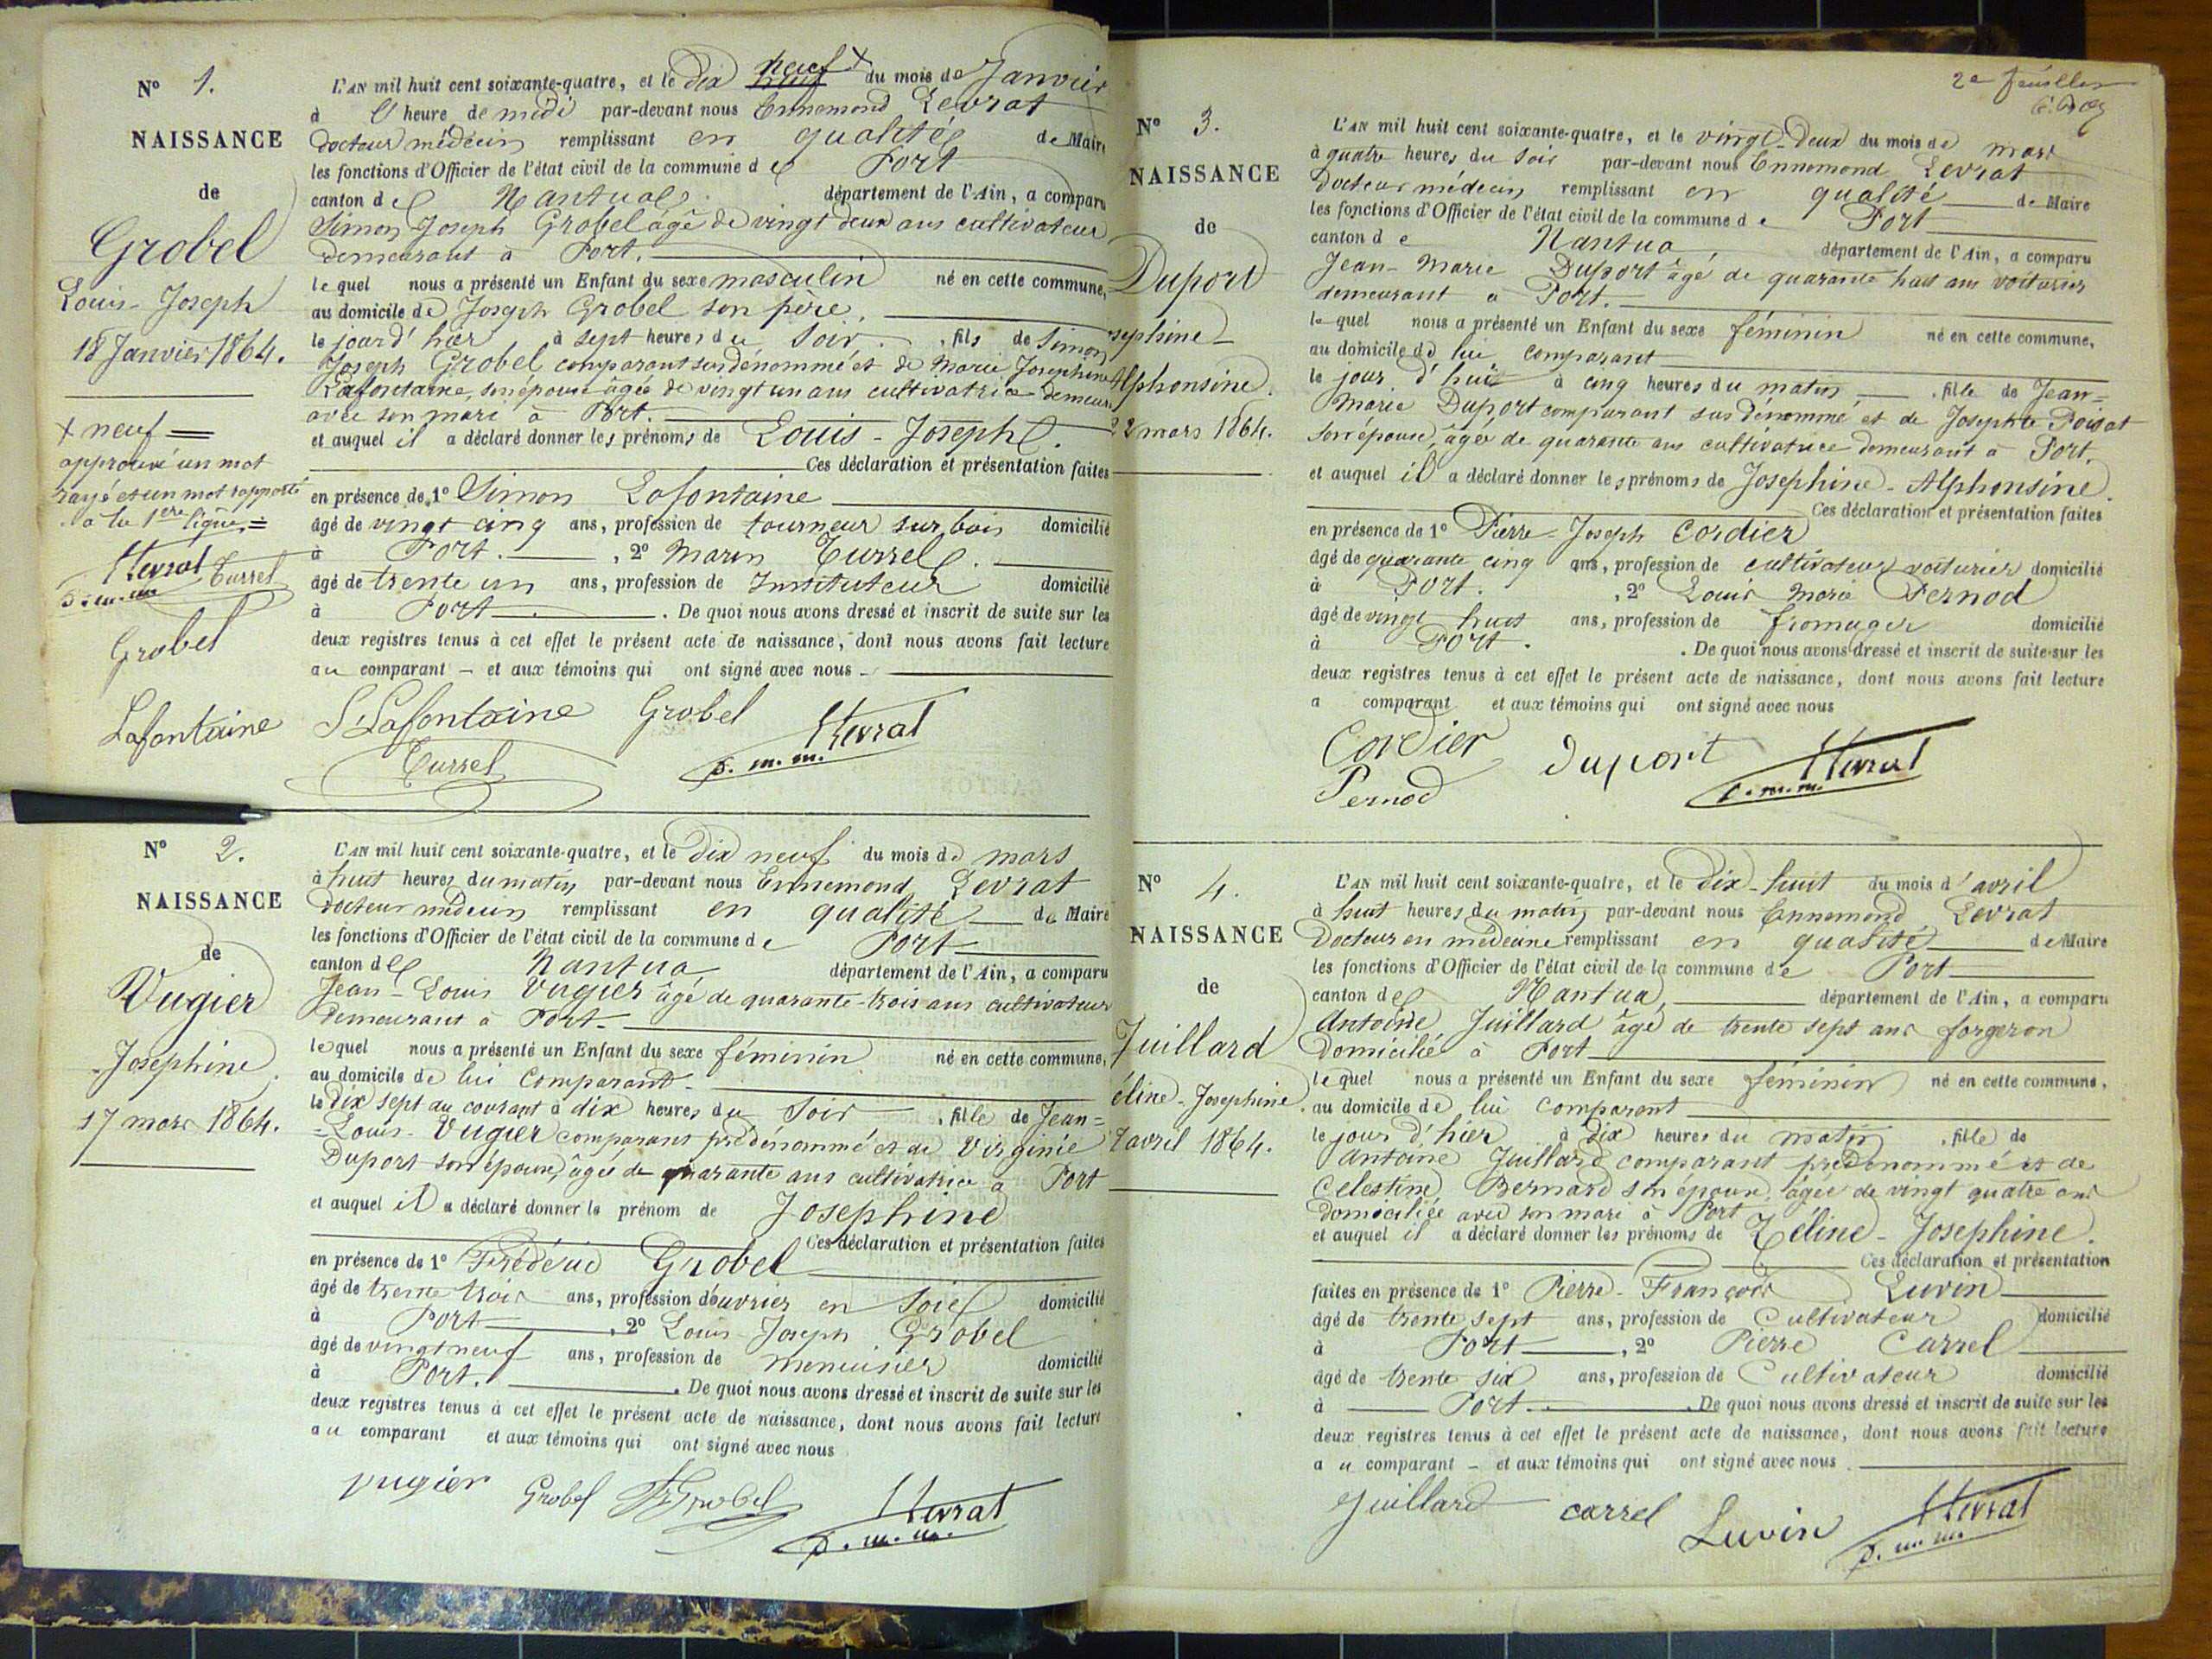 N° 1.
NAISSANCE
de
Grobel
Louis-Joseph
18 Janvier 1864.
X neuf =
approuvé un mot
rayé et un mot rapporté
à la 1ere ligne =
Levrat Turrel
D. m. m.
Grobel
Lafontaine
L'AN mil huit cent soixante-quatre, et le dix neuf X du mois de Janvier
à l'heure de midi par-devant nous Ennemond Levrat
docteur médecin remplissant en qualité de Maire
les fonctions d'Officier de l'état civil de la commune de Port
canton de Nantua département de l'Ain, a comparu
Simon Joseph Grobel âgé de vingt deux ans cultivateur
demeurant à Port.
lequel nous a présenté un Enfant du sexe masculin né en cette commune,
au domicile de Joseph Grobel son père.
le jour d'hier à sept heures du soir. fils de Simon
Joseph Grobel comparant susdénommé et de Marie Josephine
Lafontaine, son épouse âgée de vingt un ans cultivatrice demeurant
avec son mari à Port.
et auquel il a déclaré donner les prénoms de Louis-Joseph.
Ces déclaration et présentation faites
en présence de 1° Simon Lafontaine
âgé de vingt cinq ans, profession de tourneur sur bois domicilié
à Port. , 2° Marin Turrel.
âgé de trente un ans, profession de Instituteur domicilié
à Port. De quoi nous avons dressé et inscrit de suite sur les
deux registres tenus à cet effet le présent acte de naissance, dont nous avons fait lecture
au comparant - et aux témoins qui ont signé avec nous -
S. Lafontaine Grobel Levrat
Turrel D. m. m.
N° 2.
NAISSANCE
de
Vugier
Josephine
17 mars 1864.
L'AN mil huit cent soixante-quatre, et le dix neuf du mois de mars
à huit heures du matin par-devant nous Ennemond Levrat
Docteur médecin remplissant en qualité de Maire
les fonctions d'Officier de l'état civil de la commune de Port
canton de Nantua département de l'Ain, a comparu
Jean-Louis Vugier âgé de quarante-trois ans cultivateur
demeurant à Port.
lequel nous a présenté un Enfant du sexe féminin né en cette commune,
au domicile de lui Comparant.
le dix sept du courant à dix heures du soir , fille de Jean=
=Louis Vugier comparant prédénommé et de Virginie
Duport son épouse, âgée de quarante ans cultivatrice à Port
et auquel il a déclaré donner le prénom de Josephine
Ces déclaration et présentation faites
en présence de 1° Frédéric Grobel
âgé de trente trois ans, profession d'ouvrier en soie domicilié
à Port , 2° Louis-Joseph Grobel
âgé de vingt neuf ans, profession de menuisier domicilié
à Port. . De quoi nous avons dressé et inscrit de suite sur les
deux registres tenus à cet effet le présent acte de naissance, dont nous avons fait lecture
au comparant et aux témoins qui ont signé avec nous
Vugier Grobel Fc Grobel Levrat
D. m. m.
2e feuillet
N° 3.
NAISSANCE
de
Duport
sephine-
Alphonsine.
22 mars 1864.
L'AN mil huit cent soixante-quatre, et le vingt-deux du mois de mars
à quatre heures du soir par-devant nous Ennemond Levrat
Docteur médecin remplissant en qualité de Maire
les fonctions d'Officier de l'état civil de la commune de Port
canton de Nantua, département de l'Ain, a comparu
Jean-Marie Duport âgé de quarante huit ans voiturier
demeurant à Port.
lequel nous a présenté un Enfant du sexe féminin né en cette commune,
au domicile de lui comparant
le jour d'hui à cinq heures du matin , fille de Jean=
Marie Duport comparant susdénommé et de Josephte Poisat
son épouse, âgée de quarante ans cultivatrice demeurant à Port.
et auquel il a déclaré donner les prénoms de Josephine-Alphonsine.
Ces déclaration et présentation faites
en présence de 1° Pierre-Joseph Cordier
âgé de quarante cinq ans, profession de cultivateur voiturier domicilié
à Port. , 2° Louis Marie Pernod
âgé de vingt huit ans, profession de fromager domicilié
à Port. . De quoi nous avons dressé et inscrit de suite sur les
deux registres tenus à cet effet le présent acte de naissance, dont nous avons fait lecture
a comparant et aux témoins qui ont signé avec nous
Cordier Duport Levrat
Pernod D. m. m.
N° 4.
NAISSANCE
de
Juillard
éline-Josephine.
7 avril 1864.
L'AN mil huit cent soixante-quatre, et le dix-huit du mois d'avril
à huit heures du matin par-devant nous Ennemond Levrat
Docteur en médecine remplissant en qualité de Maire
les fonctions d'Officier de l'état civil de la commune de Port
canton de Nantua, département de l'Ain, a comparu
Antoine Juillard âgé de trente sept ans forgeron
domicilié à Port
lequel nous a présenté un Enfant du sexe féminin né en cette commune,
au domicile de lui comparant
le jour d'hier à dix heures du matin , fille de
Antoine Juillard comparant prédénommé et de
Celestine Bernard son épouse, âgée de vingt quatre ans
domiciliée avec son mari à Port
et auquel il a déclaré donner les prénoms de Zéline-Josephine.
Ces déclaration et présentation
faites en présence de 1° Pierre-François Luvin
âgé de trente sept ans, profession de Cultivateur domicilié
à Port , 2° Pierre Carrel
âgé de trente six ans, profession de Cultivateur domicilié
à Port. . De quoi nous avons dressé et inscrit de suite sur les
deux registres tenus à cet effet le présent acte de naissance, dont nous avons fait lecture
au comparant - et aux témoins qui ont signé avec nous.
Juillard Carrel Luvin Levrat
D. m. m.